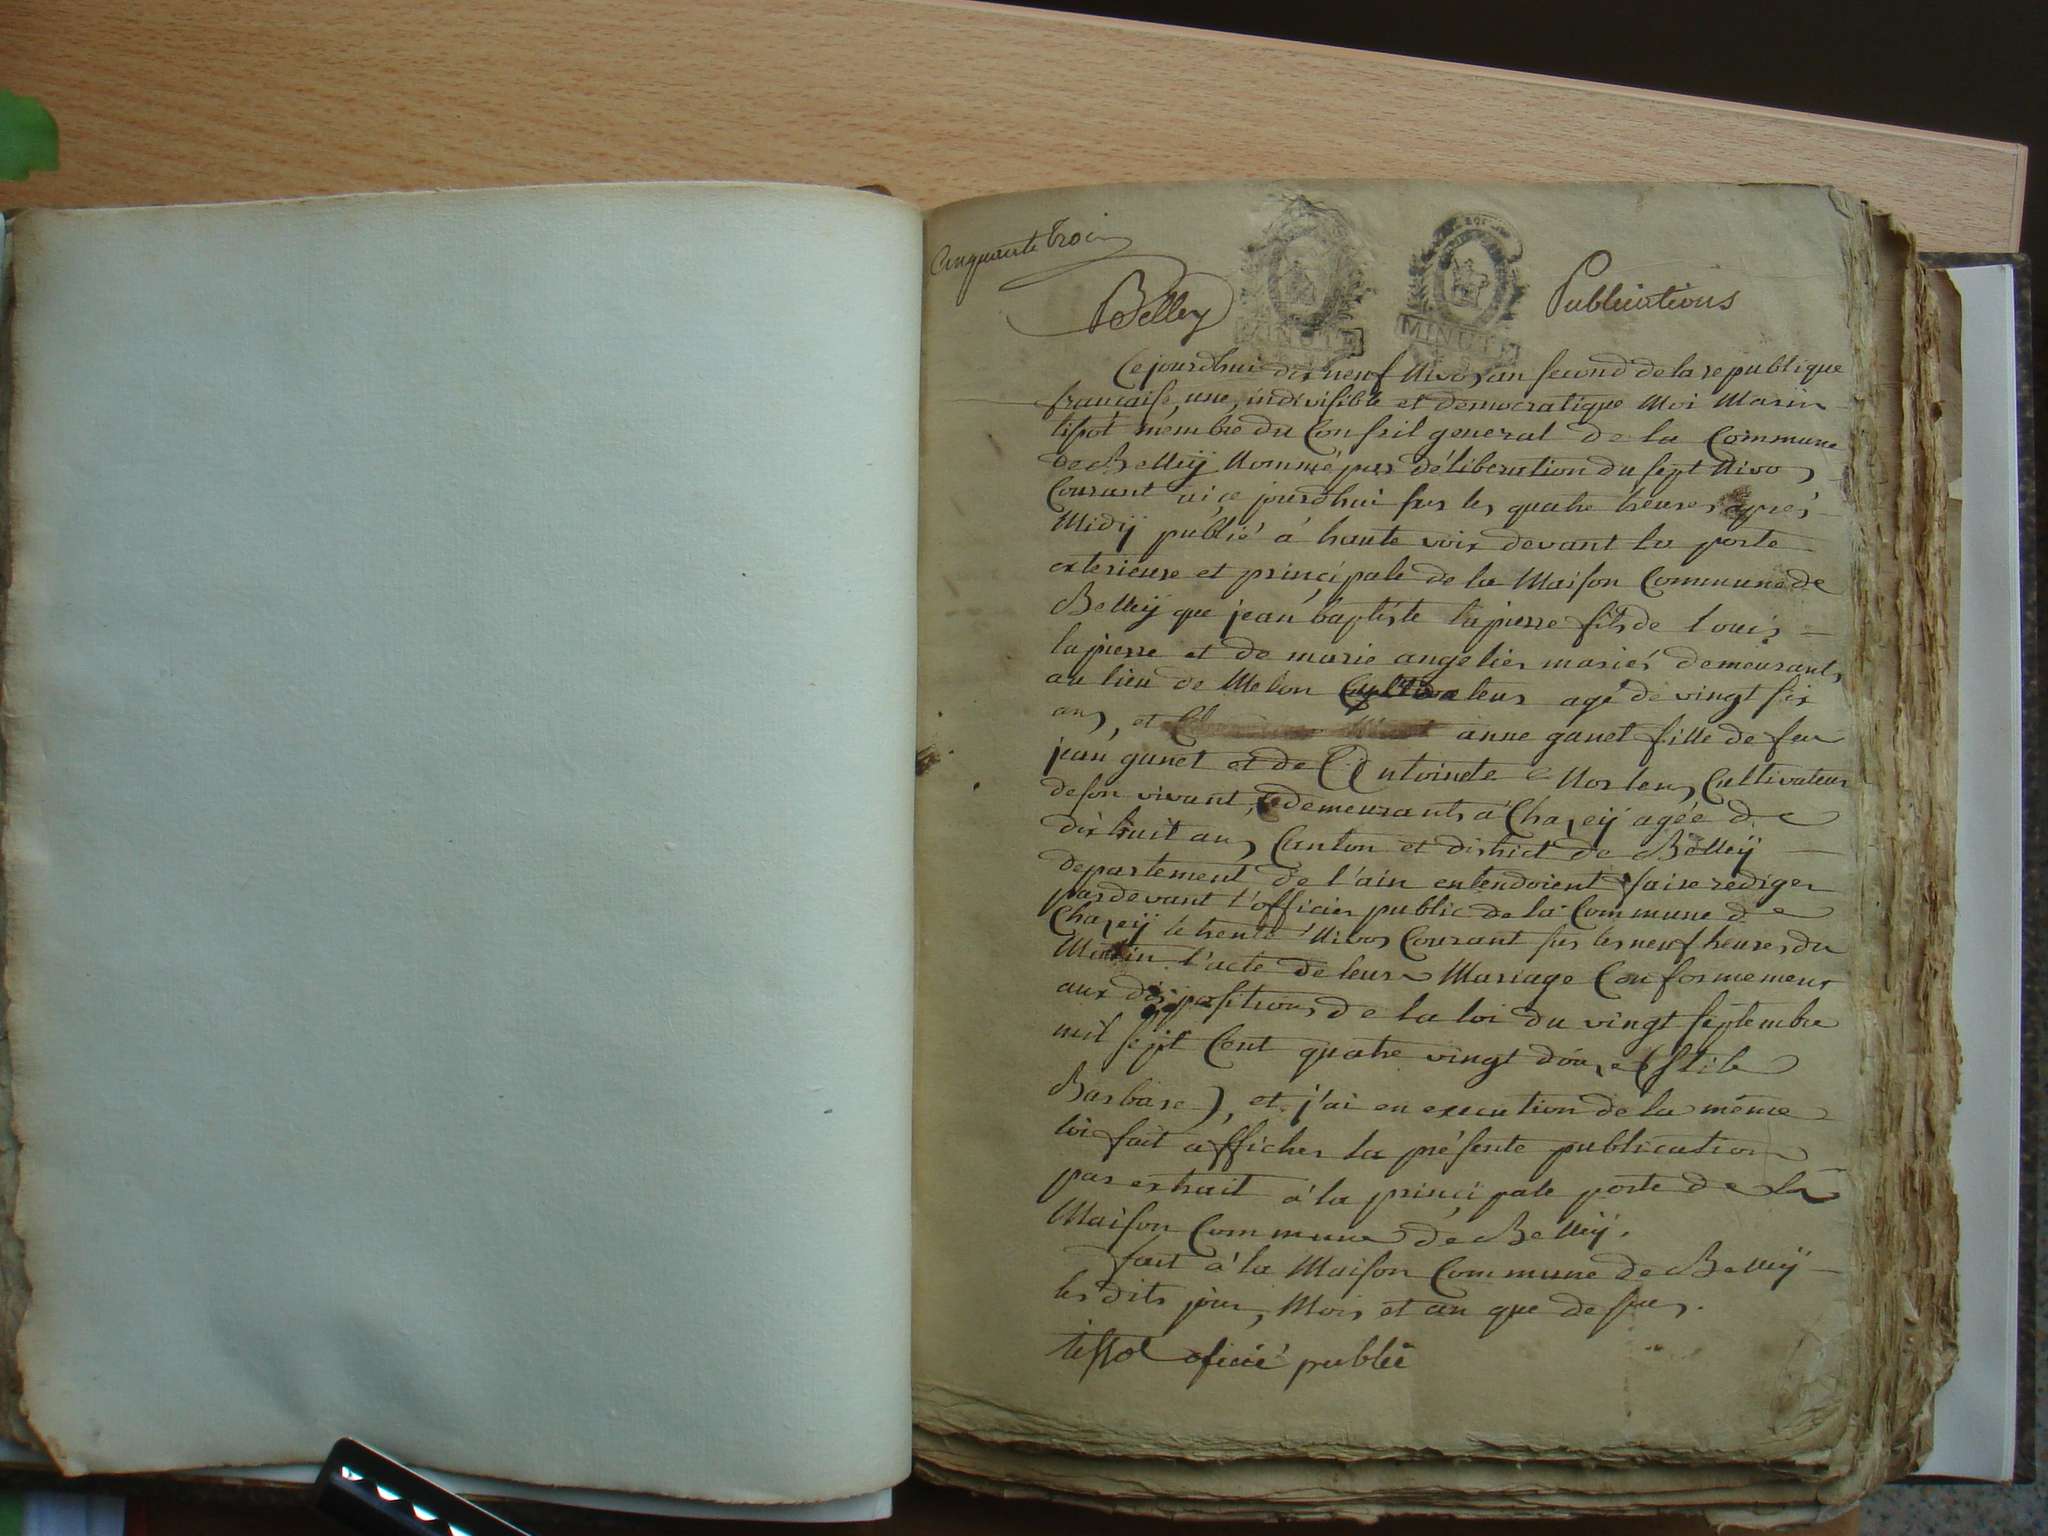 Cinquante trois
Belley
MINUTE
MINUTE
Publications
Cejourdhui dix neuf Nivos an second de la republique
francaise, une, indivisible et democratique Moi Marin
tisot membre du Conseil general de la Commune
de Belleÿ Nommé par déliberation du sept Nivos
Courant ai, ce jourdhui sur les quatre heures après
Midÿ publié à haute voix devant la porte
exterieure et principale de la Maison Commune de
Belleÿ que jean baptiste lapierre fils de louis
lapierre et de marie angelier mariés demeurants
au lieu de Melon Cultivateur agé de vingt six
ans, et anne ganet fille de feu
jean ganet et de Antoinete Cultivateur
de son vivant, demeurants à Chazeÿ agée de
dix huit ans Canton et district de Belleÿ
departement de l'ain entendoient faire rediger
pardevant l'officier public de la Commune de
Chazeÿ le trente Nivos Courant sur les neuf heures du
Matin l'acte de leur Mariage Conformement
aux dispositions de la loi du vingt septembre
mil sept Cent quatre vingt douze (stile
Barbare), et j'ai en execution de la même
loi fait afficher la présente publication
par extrait à la principale porte de la
Maison Commune de Belleÿ.
fait à la Maison Commune de Belleÿ
les dits jour, Mois et an que dessus.
tissot oficié publié